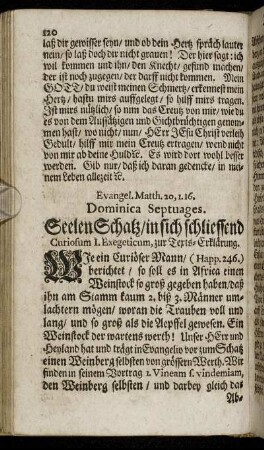 120
laß dir gewisser seyn/ und ob dein Hertz spräch lauter
nein/ so laß doch dir nicht grauen! Der hier sagt: ich
wil kommen und ihn/ den Knecht/ gesund machen/
der ist noch zugegen/ der darff nicht kommen. Mein
GOTT/ du weist meinen Schmertz/ erkennest mein
Hertz/ hastu mirs auffgelegt/ so hilff mirs tragen.
Ist mirs nützlich/ so nim das Creutz von mir/ wie du
es von dem Aussätzigen und Gichtbrüchtigen genom-
men hast/ wo nicht/ nun/ HErr JEsu Christ verleih
Gedult/ hilff mir mein Creutz ertragen/ wend nicht
von mir ab deine Huld&c. Es wird dort wohl besser
werden. Gib nur/ daß ich daran gedencke/ in mei-
nem Leben allezeit &c.
Evangel. Matth. 20, 1.16.
Dominica Septuages.
Seelen Schatz/ in sich schliessend
Curiosum I. Exegeticum, zur Texts-Erklärung.
WIe ein Curiöser Mann/ (Happ. 246.)
berichtet/ so soll es in Africa einen
Weinstock so groß gegeben haben/ daß
ihn am Stamm kaum 2. biß 3. Männer um-
lachtern mögen/ woran die Trauben voll und
lang/ und so groß als die Aepffel gewesen. Ein
Weinstock der wartens werth! Unser HErr und
Heyland hat und trägt in Evangelio vor zum Schatz
einen Weinberg selbsten von grössern Werth. Wir
finden in seinem Vortrag 1. Vineam s. vindemiam,
den Weinberg selbsten/ und darbey gleich das
Ab-